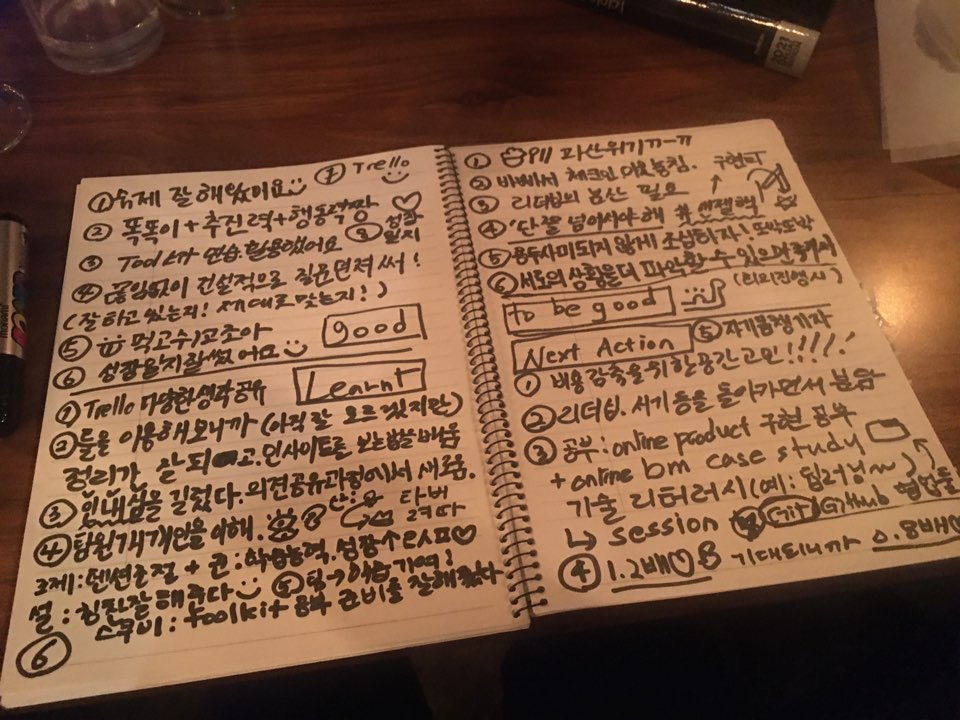 ① 숙제 잘 해왔어요 ⑦ Trello
② 똑똑이+추진력+행동력짱
③ Tool 연습 활용했어요 ⑧ 성장일지
④ 끊임없이 건설적으로 질문 던져써!
(잘 하고 있는지! 제대로 맞는지!)
⑤ 먹고수다고조아
good
⑥ 성장일지 잘 썼어요
Learnt
① Trello 다양한 생각 공유
② 툴을 이용해보니까 (아직 잘 모르겠지만)
정리가 잘 되고. 인사이트로 보는법을 배움
③ 인내심을 길렀다. 의견공유과정에서 새로움.
④ 팀원 개개인을 이해. 타버려따
텐션조절 + 학습능력, 성장
설: 칭찬 잘해주다 ⑤ 팀→학습기여!
스쿠비: toolkit 공부 준비를 잘해왔다
⑥
① 파산위기ㅠ-ㅠ
② 바빠서 체크인 놓침. 구현
③ 리더십의 분산 필요
④ '단'을 넘어서야해 #
⑤ 용두사미되지 않게 조심하자! 또박또박
⑥ 서로의 상황을 더 파악할 수 있으면 좋겠어
(회의진행시)
to be good
Next Action ⑤ 자기몸챙기자
① 비용감축을 위한 공간 고민!!!!!
② 리더십. 서기 등을 돌아가면서 분담
③ 공부: online product 구현 공부
+ online bm case study
기술 리터러시 (예: 딥러닝~)
↳ session Git GitHub 협업툴
④ 1.2배♡ 기대되니까 0.8배♡
2021